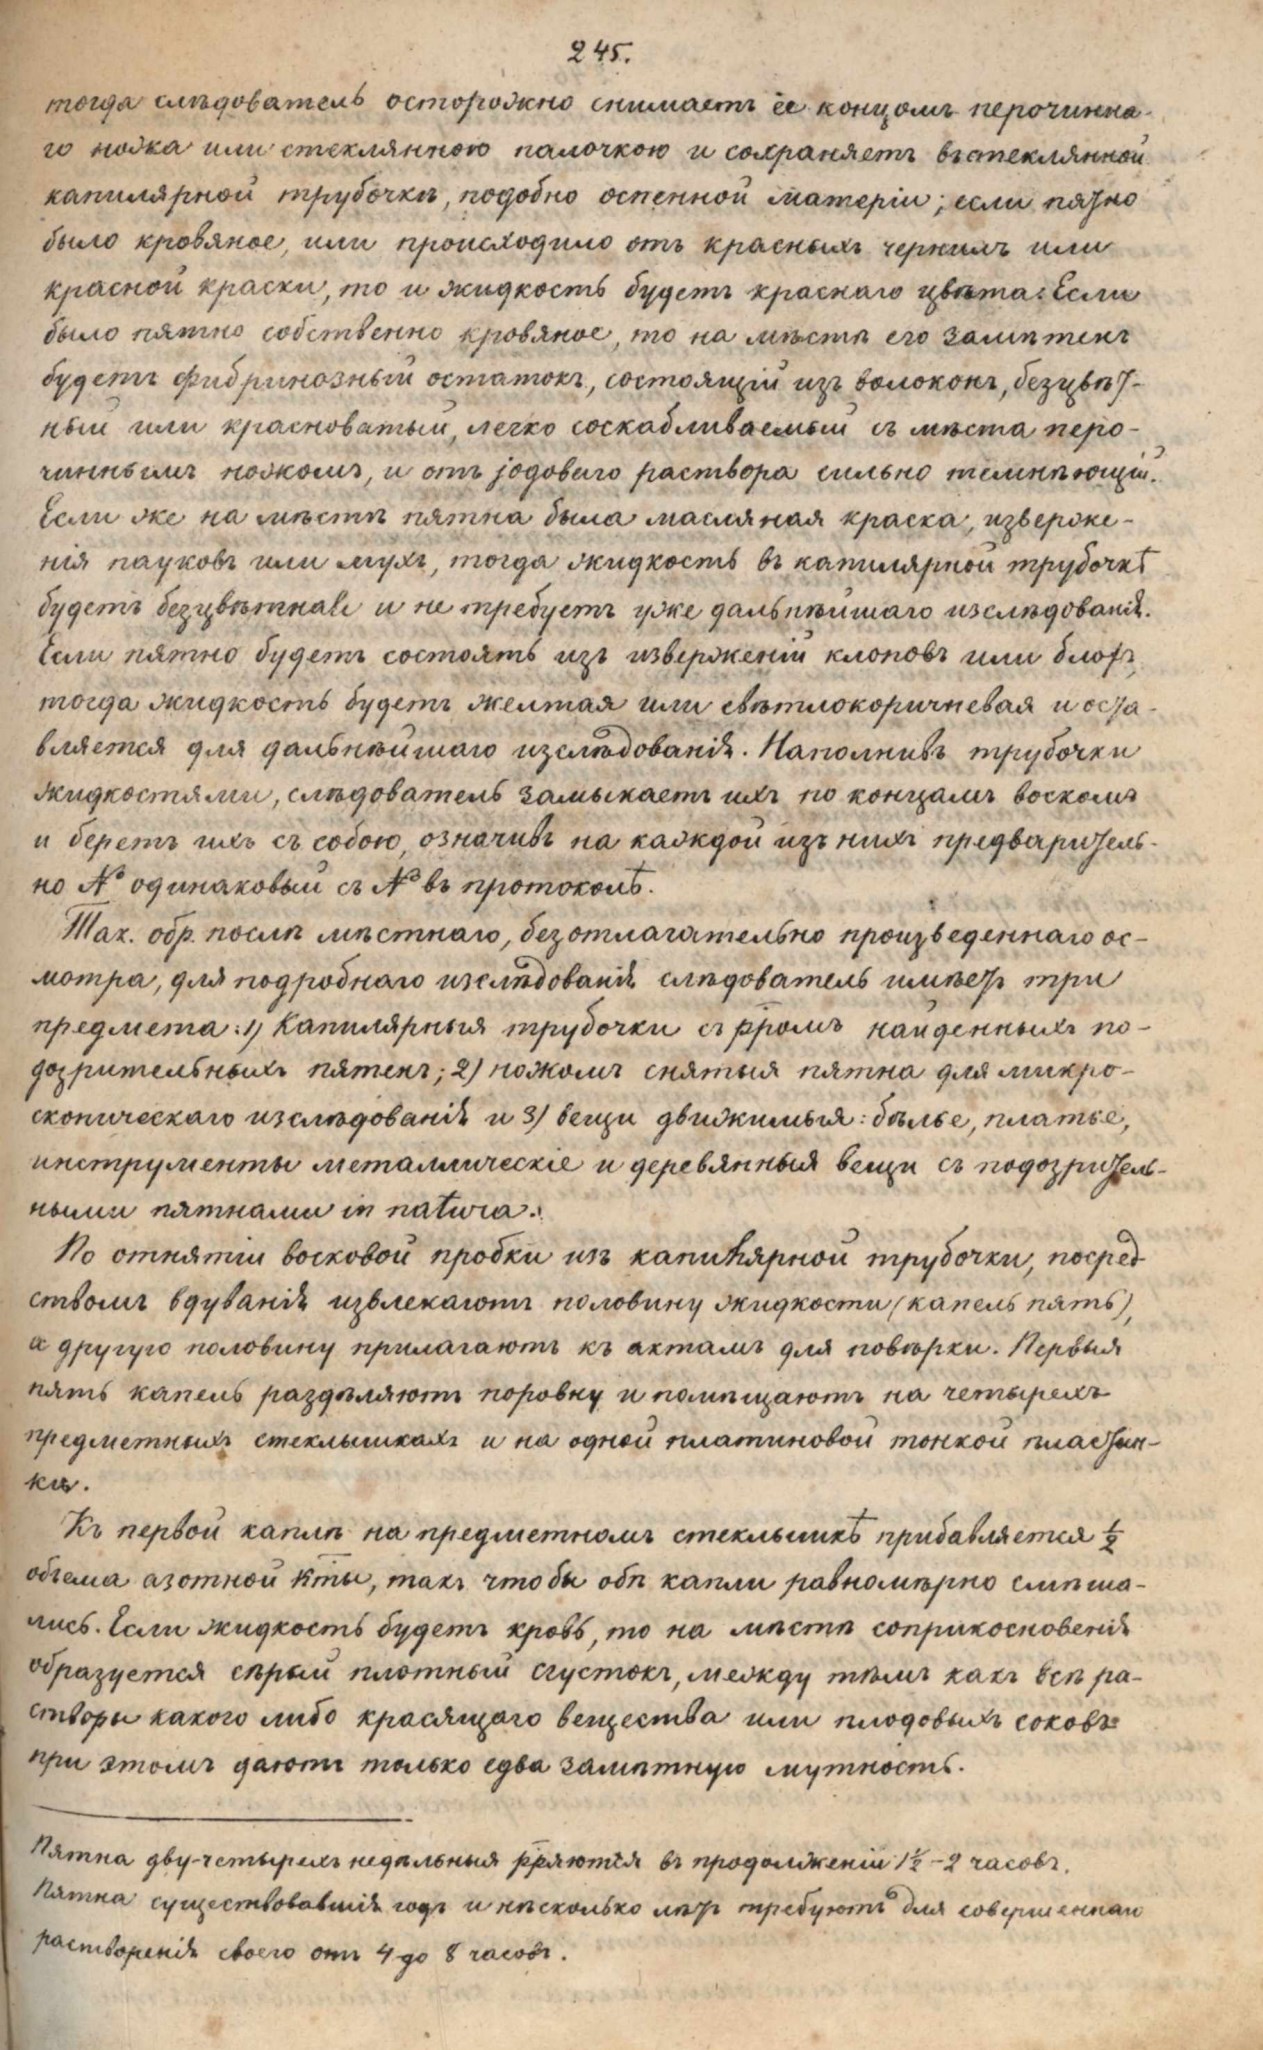 245.
тогда слѣдователь осторожно снимаетъ ее концомъ перочинна-
го ножа или стеклянною палочкою и сохраняетъ въ стеклянной
капилярной трубочкѣ, подобно оспенной матеріи; если пятно
было кровяное, или происходило отъ красныхъ чернилъ или
красной краски, то и жидкость будетъ краснаго цвѣта. Если
было пятно собственно кровяное, то на мѣстѣ его замѣтенъ
будетъ фибринозный остатокъ, состоящій изъ волоконъ, безцвѣт-
ный или красноватый, легко соскабливаемый съ мѣста перо-
чиннымъ ножомъ, и отъ jодоваго раствора сильно темнѣющій.
Если же на мѣстѣ пятна была масляная краска, изверже-
нія пауковъ или мухъ, тогда жидкость въ капилярной трубочкѣ
будетъ безцвѣтная и не требуетъ уже дальнѣйшаго изслѣдованія.
Если пятно будетъ состоять изъ изверженій клоповъ или блохъ,
тогда жидкость будетъ желтая или свѣтлокоричневая и оста-
вляется для дальнѣйшаго изслѣдованія. Наполнивъ трубочки
жидкостями, слѣдователь замыкаетъ ихъ по концамъ воскомъ
и беретъ ихъ съ собою, означивъ на каждой изъ нихъ предваритель-
но № одинаковый съ № въ протоколѣ.
Так. обр. послѣ мѣстнаго, безотлагательно произведеннаго ос-
мотра, для подробнаго изслѣдованія слѣдователь имѣетъ три
предмета: 1) Капилярныя трубочки съ рромъ найденныхъ по-
дозрительныхъ пятенъ; 2) ножомъ снятыя пятна для микро-
скопическаго изслѣдованія и 3) вещи движимыя: бѣлье, платье,
инструменты металлическіе и деревянныя вещи съ подозритель-
ными пятнами in natura.
По отнятіи восковой пробки изъ капилярной трубочки, посред-
ствомъ вдуванія извлекаютъ половину жидкости (капель пять),
а другую половину прилагаютъ къ актамъ для повѣрки. Первыя
пять капель раздѣляютъ поровну и помѣщаютъ на четырехъ
предметныхъ стеклышкахъ и на одной платиновой тонкой пластин-
кѣ.
Къ первой каплѣ на предметномъ стеклышкѣ прибавляется ½
объема азотной кты, такъ чтобы обѣ капли равномѣрно смѣша-
лись. Если жидкость будетъ кровь, то на мѣстѣ соприкосновенія
образуется сѣрый плотный сгустокъ, между тѣмъ какъ всѣ ра-
створы какого либо красящаго вещества или плодовыхъ соковъ
при этомъ даютъ только едва замѣтную мутность.
Пятна дву-четырехъ недѣльныя рряются въ продолженіи 1½-2 часовъ.
Пятна существовавшія годъ и нѣсколько лѣтъ требуютъ для совершеннаго
растворенія своего отъ 4 до 8 часовъ.